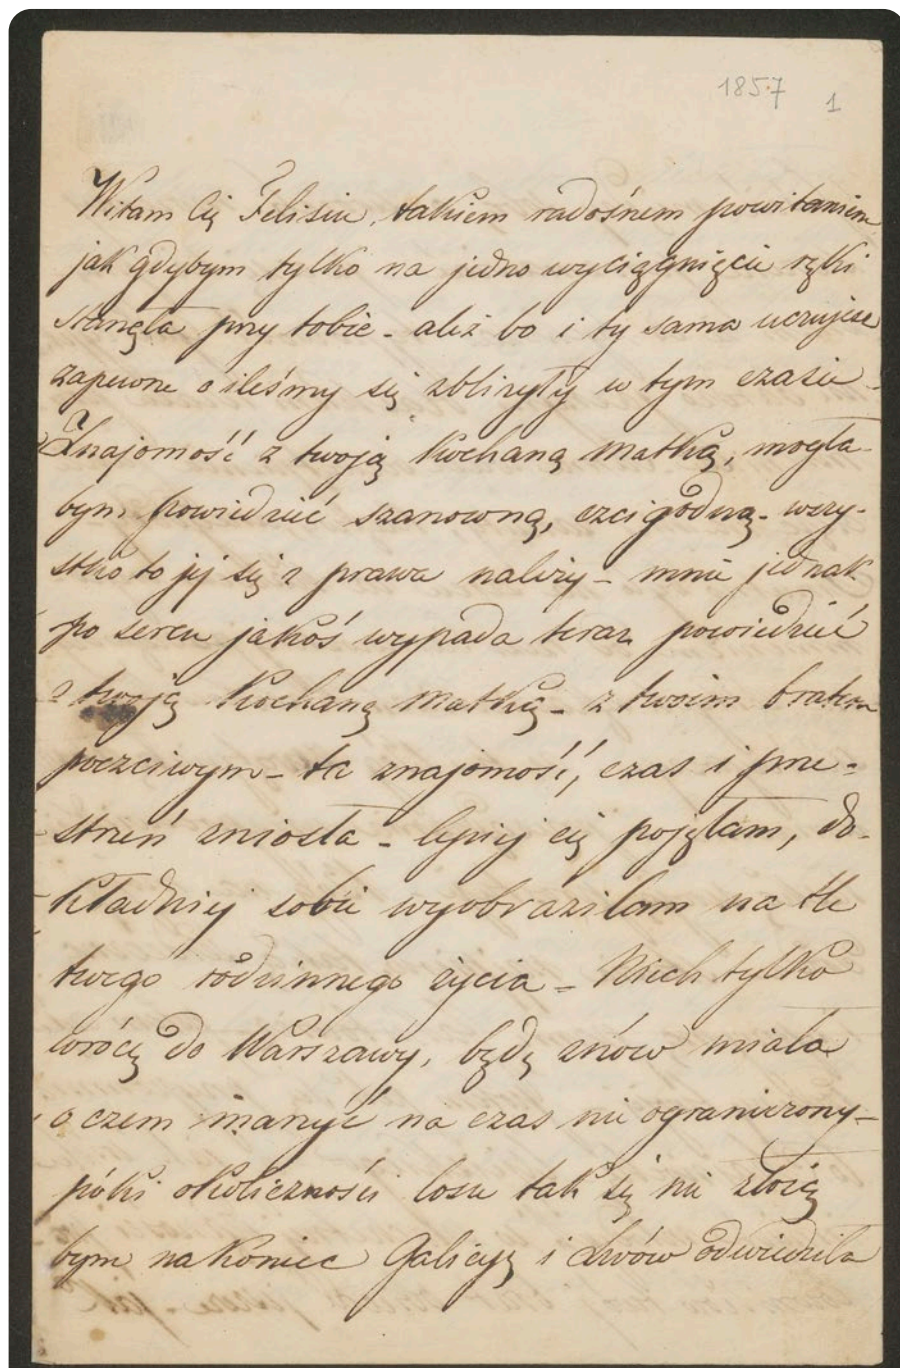 1857 1
Witam Cię Felisiu, takiem radośnem powitaniem
jak gdybym tylko na jedno wyciągnięcie ręki
stanęła przy tobie - ależ bo i ty sama uczujesz
zapewne o ileśmy się zbliżyły w tym czasie -
Znajomość z twoją kochaną matką, mogła-
bym powiedzieć szanowną, czcigodną - wszy-
stko to jej się z prawa należy - mnie jednak
po sercu jakoś wypada teraz powiedzieć
z twoją kochaną matką - z twoim bratem
poczciwym - ta znajomość, czas i prze-
strzeń zniosła - lepiej cię pojęłam, do-
kładniej sobie wyobraziłam na tle
twego rodzinnego życia - Niech tylko
wrócę do Warszawy, będę znów miała
o czem marzyć na czas nie ograniczony -
póki okoliczności losu tak się nie złożą
bym nakoniec Galicyę i Lwów odwiedziła